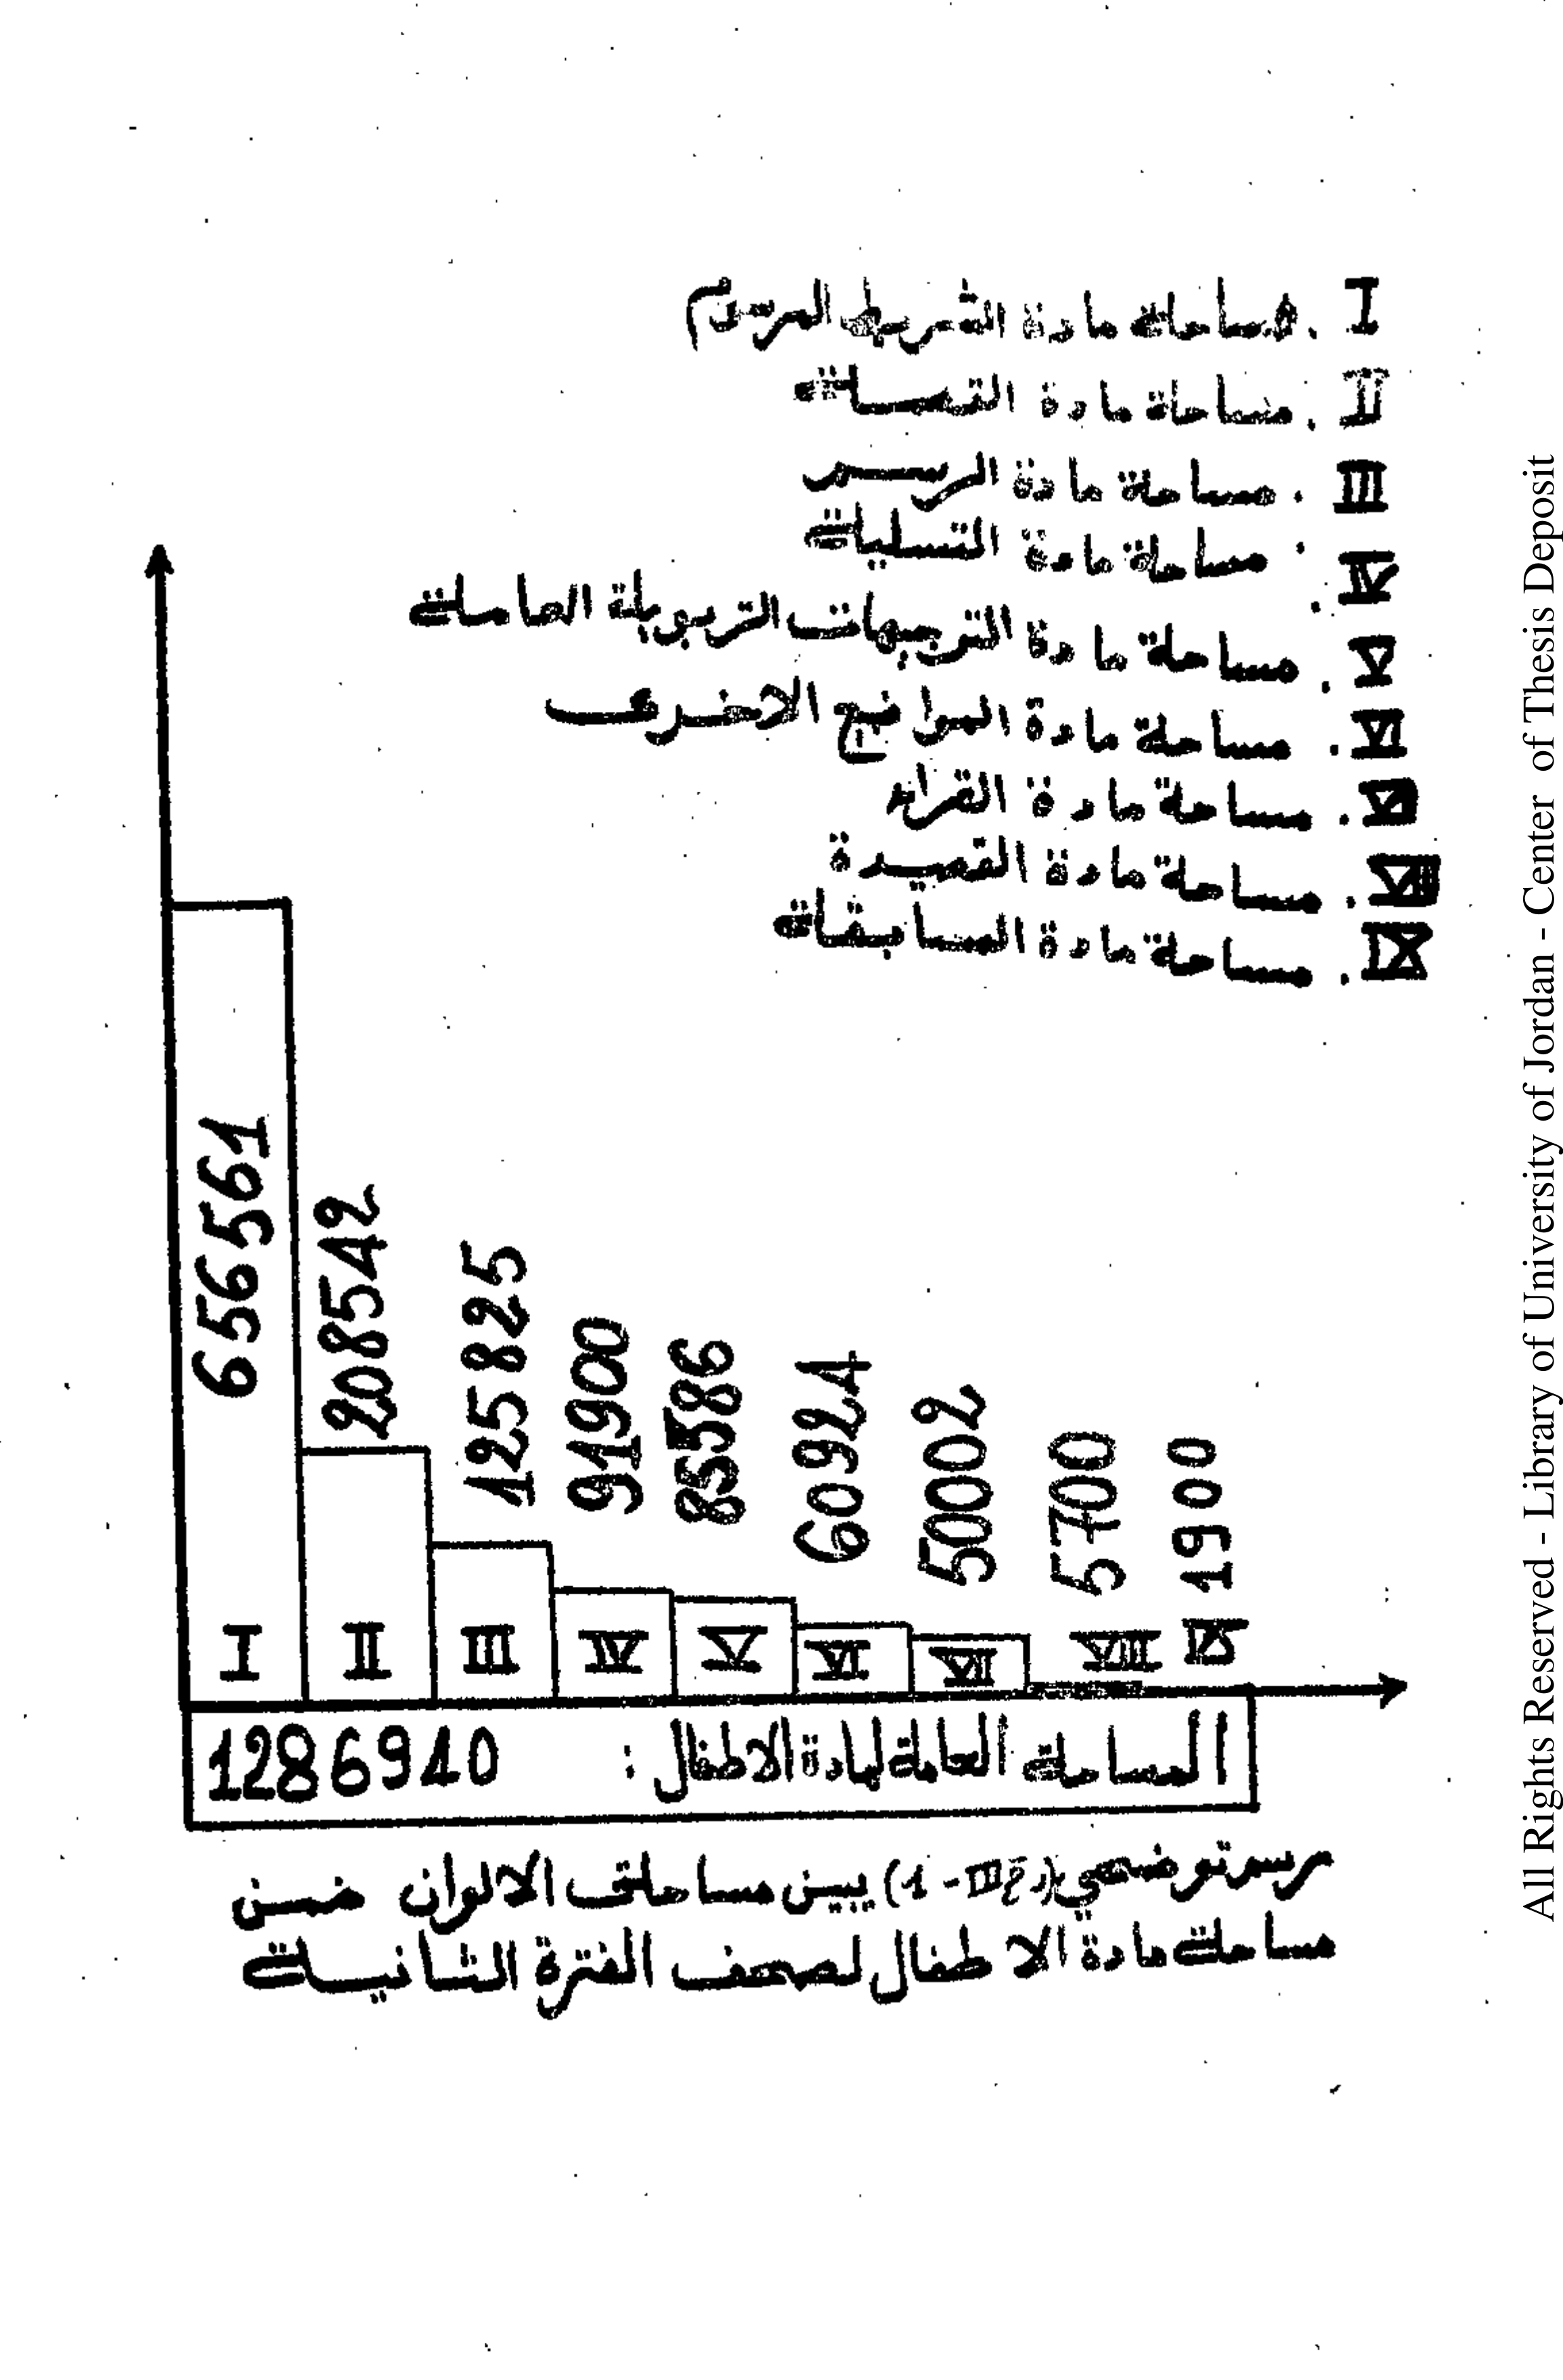 I . مساحة مادة الشريط المرسوم
II . مساحة مادة القصة
III . مساحة مادة الرسم
IV . مساحة مادة التسلية
V . مساحة مادة التوجيهات التربوية العامة
VI . مساحة مادة المواضيع الاخرى
VII . مساحة مادة القراء
VIII . مساحة مادة القصيدة
IX . مساحة مادة المسابقة
656561
208542
125825
91900
85586
60924
50002
5700
1900
I II III IV V VI VII VIII IX
المساحة العامة لمادة الاطفال : 1286940
رسم توضيحي (رقم III - 1) يبين مساحة الالوان ضمن
مساحة مادة الاطفال لصحف الفترة الثانية
All Rights Reserved - Library of University of Jordan - Center of Thesis Deposit